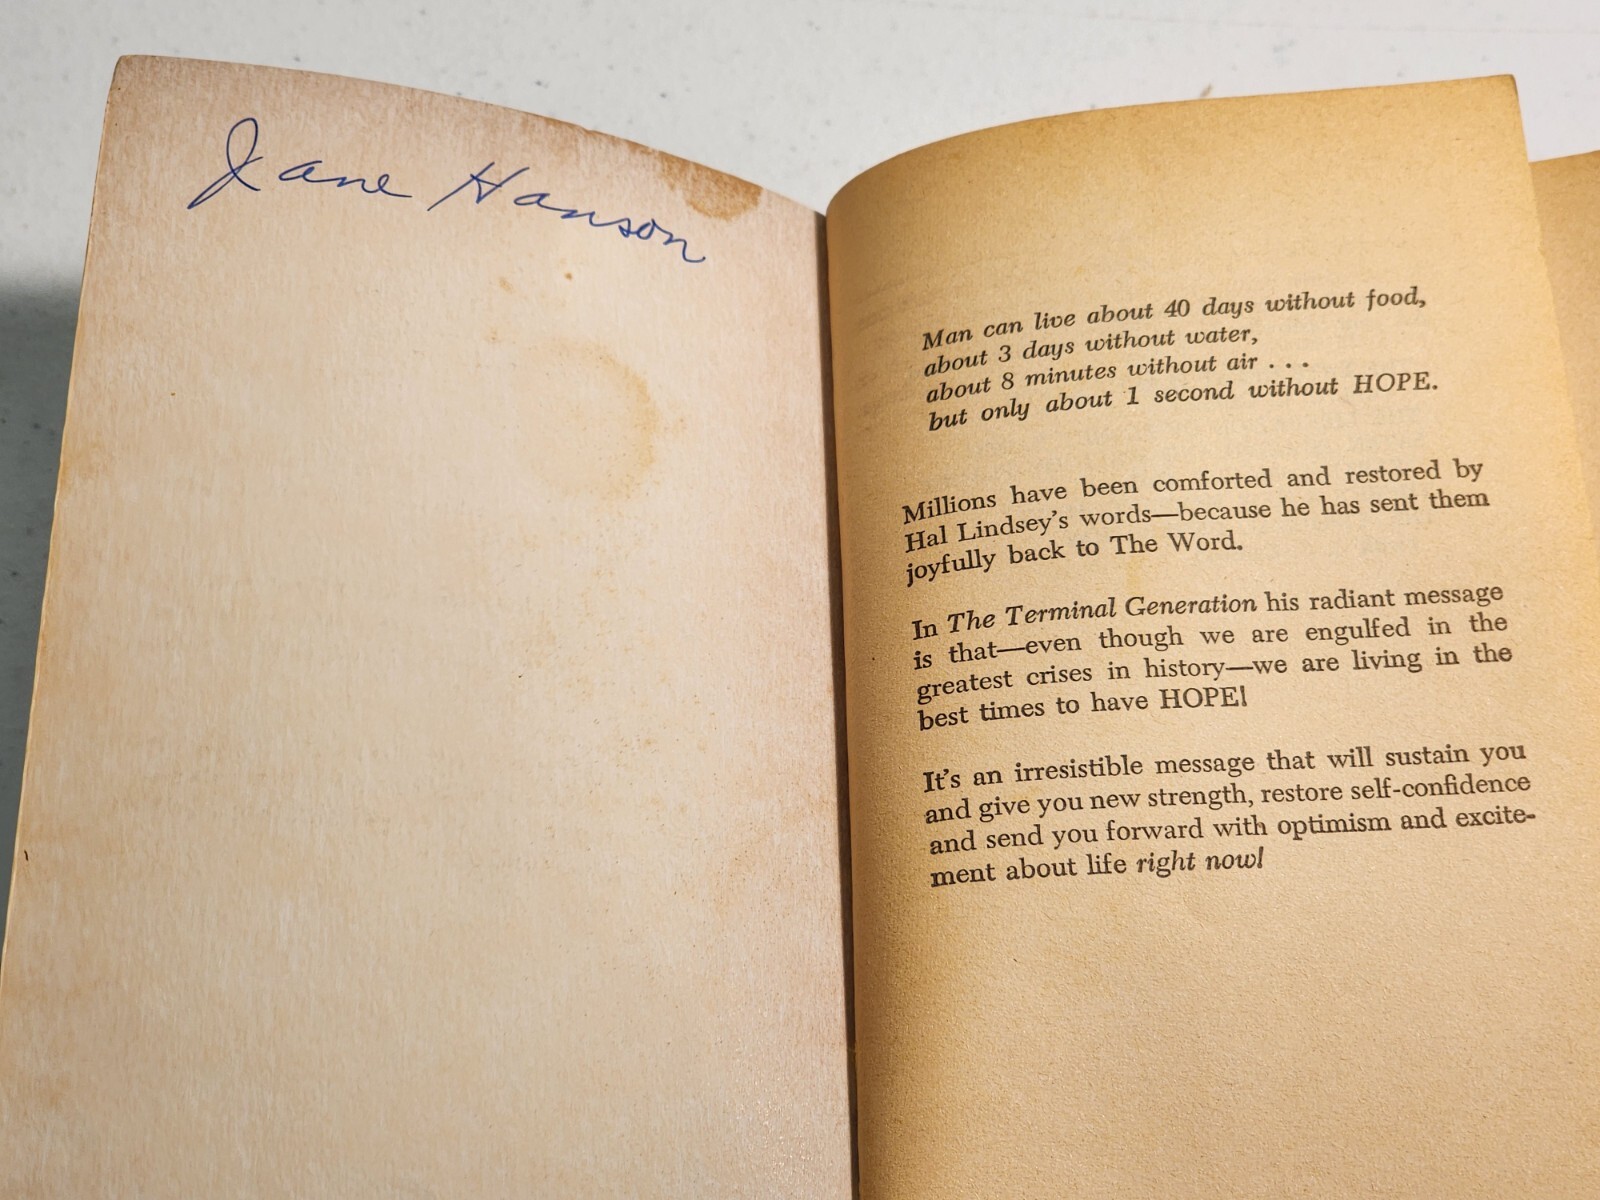 Jane Hanson
Man can live about 40 days without food,
about 3 days without water,
about 8 minutes without air . . .
but only about 1 second without HOPE.
Millions have been comforted and restored by
Hal Lindsey's words—because he has sent them
joyfully back to The Word.
In The Terminal Generation his radiant message
is that—even though we are engulfed in the
greatest crises in history—we are living in the
best times to have HOPE!
It's an irresistible message that will sustain you
and give you new strength, restore self-confidence
and send you forward with optimism and excite-
ment about life right now!